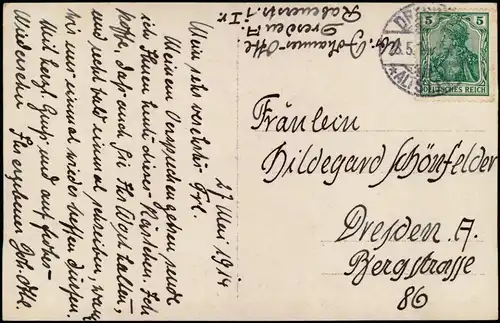 27 Mai 1914
Mein sehr verehrtes Frl.
Meinem Versprechen gemäß sende
ich Ihnen heute dieses Kärtchen. Ich
hoffe, daß auch Sie Ihr Wort halten,
und recht bald einmal schreiben, wann
wir uns einmal wieder treffen dürfen.
Mit herzl. Gruß und auf frohes
Wiedersehn Ihr ergebener Joh. Otto.
Johannes Otto
Dresden A
Rabenerstr. 1 I r.
DEUTSCHES REICH
5 5
Fräulein
Hildegard Schönfelder
Dresden. A.
Bergstrasse
86